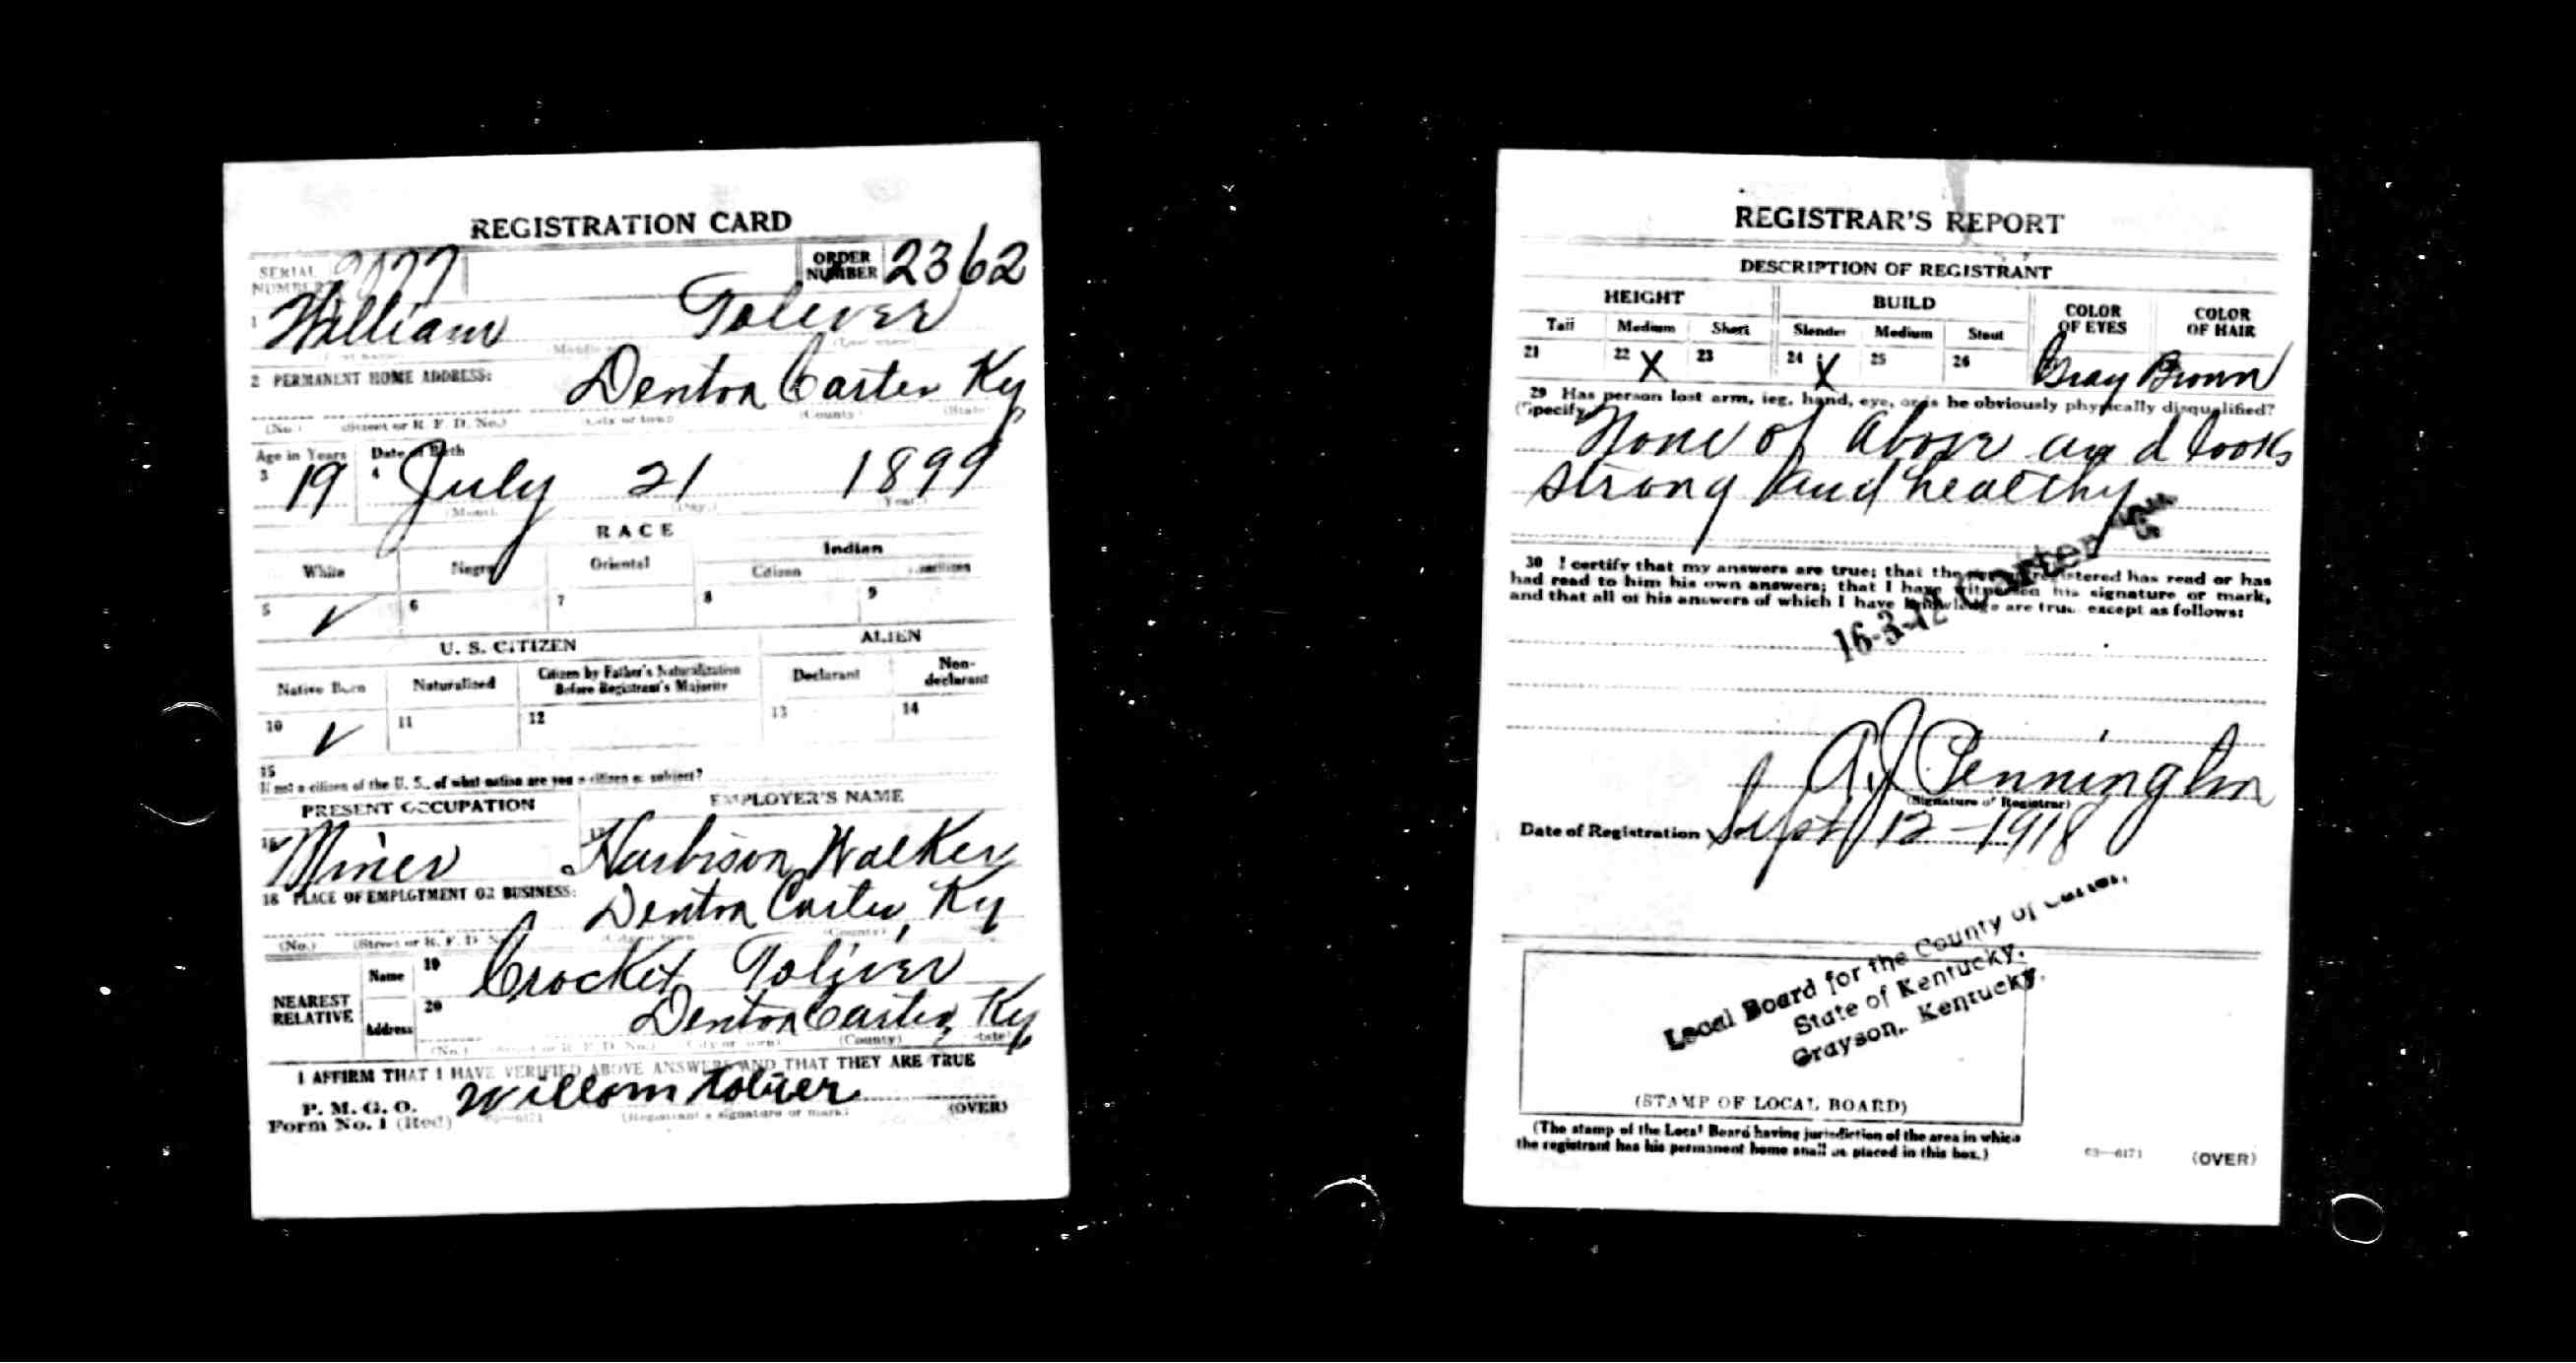 REGISTRATION CARD
SERIAL NUMBER ORDER NUMBER 2362
1 William Toliver
2 PERMANENT HOME ADDRESS: Denton Carter Ky
(No.) (Street or R. F. D. No.) (City or town) (County) (State)
Age in Years Date of Birth
3 19 4 July 21 1899
(Month) (Day.) (Year.)
RACE
White Negro Oriental Indian
Citizen Noncitizen
5 ✓ 6 7 8 9
U. S. CITIZEN ALIEN
Native Born Naturalized Citizen by Father's Naturalization Before Registrant's Majority Declarant Non-declarant
10 ✓ 11 12 13 14
15
If not a citizen of the U. S., of what nation are you a citizen or subject?
PRESENT OCCUPATION EMPLOYER'S NAME
16 Miner 17 Harbison Walker
18 PLACE OF EMPLOYMENT OR BUSINESS: Denton Carter, Ky
(No.) (Street or R. F. D. No.) (City or town) (County)
NEAREST RELATIVE Name 19 Crocket Toliver
Address 20 Denton Carter, Ky
(No.) (Street or R. F. D. No.) (City or town) (County) (State)
I AFFIRM THAT I HAVE VERIFIED ABOVE ANSWERS AND THAT THEY ARE TRUE
P. M. G. O.
Form No. 1 (Red) 03—6171 Willom toliver (Registrant's signature or mark) (OVER)
REGISTRAR'S REPORT
DESCRIPTION OF REGISTRANT
HEIGHT BUILD COLOR OF EYES COLOR OF HAIR
Tall Medium Short Slender Medium Stout
21 22 X 23 24 X 25 26 Gray Brown
29 Has person lost arm, leg, hand, eye, or is he obviously physically disqualified?
(Specify.) None of above and looks
strong and healthy
30 I certify that my answers are true; that the person registered has read or has
had read to him his own answers; that I have witnessed his signature or mark,
and that all of his answers of which I have knowledge are true, except as follows:
16-3-12 Carter Co
A J Pennington
(Signature of Registrar)
Date of Registration Sept 12-1918
Local Board for the County of Carter,
State of Kentucky.
Grayson, Kentucky.
(STAMP OF LOCAL BOARD)
(The stamp of the Local Board having jurisdiction of the area in which
the registrant has his permanent home shall be placed in this box.)
03—6171 (OVER)